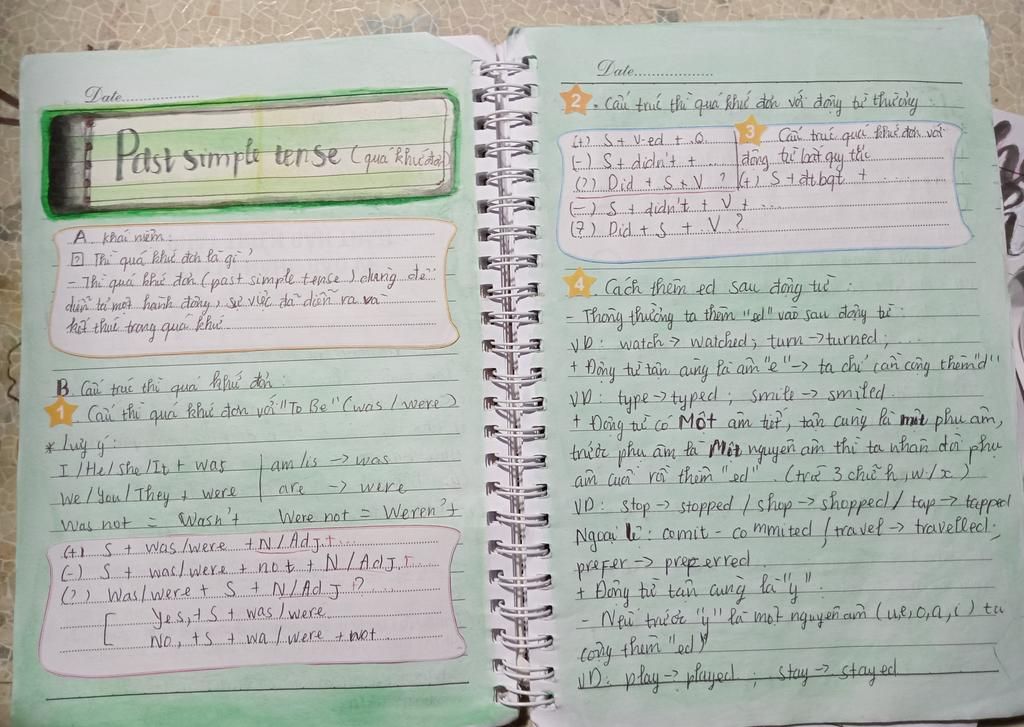 Date..................
Past simple tense (quá khứ đơn)
A. Khái niệm:
? Thì quá khứ đơn là gì?
- Thì quá khứ đơn (past simple tense) dùng để
diễn tả một hành động, sự việc đã diễn ra và
kết thúc trong quá khứ
B. Cấu trúc thì quá khứ đơn:
1. Cấu thì quá khứ đơn với "To Be" (was / were)
* Luý ý:
I / He / She / It + was | am/is -> was
We / You / They + were | are -> were
Was not = Wasn't Were not = Weren't
(+) S + was/were + N/Adj +
(-) S + was/were + not + N/Adj +
(?) Was/were + S + N/Adj ?
Yes, + S + was/were
No, + S + wa/were + not
Date..................
2. Cấu trúc thì quá khứ đơn với động từ thường
(+) S + V-ed + O
(-) S + didn't +
(?) Did + S + V ?
(-) S + didn't + V +
(?) Did + S + V ?
3 Cấu trúc quá khứ đơn với
động từ bất quy tắc
(+) S + đtbqt +
4. Cách thêm ed sau động từ :
- Thông thường ta thêm "ed" vào sau động từ :
VD: watch -> watched; turn -> turned;
+ Động từ tận cùng là âm "e" -> ta chỉ cần cộng thêm "d"
VD: type -> typed ; smile -> smiled
+ Động từ có Một âm tiết, tận cùng là một phụ âm,
trước phụ âm là Một nguyên âm thì ta nhân đôi phụ
âm cuối rồi thêm "ed" (trừ 3 chữ h, w/x)
VD: stop -> stopped / shop -> shopped / tap -> tapped
Ngoại lệ: comit - commited / travel -> travelled.
prefer -> preferred
+ Động từ tận cùng là "y" :
- Nếu trước "y" là một nguyên âm (u, e, o, a, i) ta
cộng thêm "ed"
VD: play -> played ; stay -> stayed